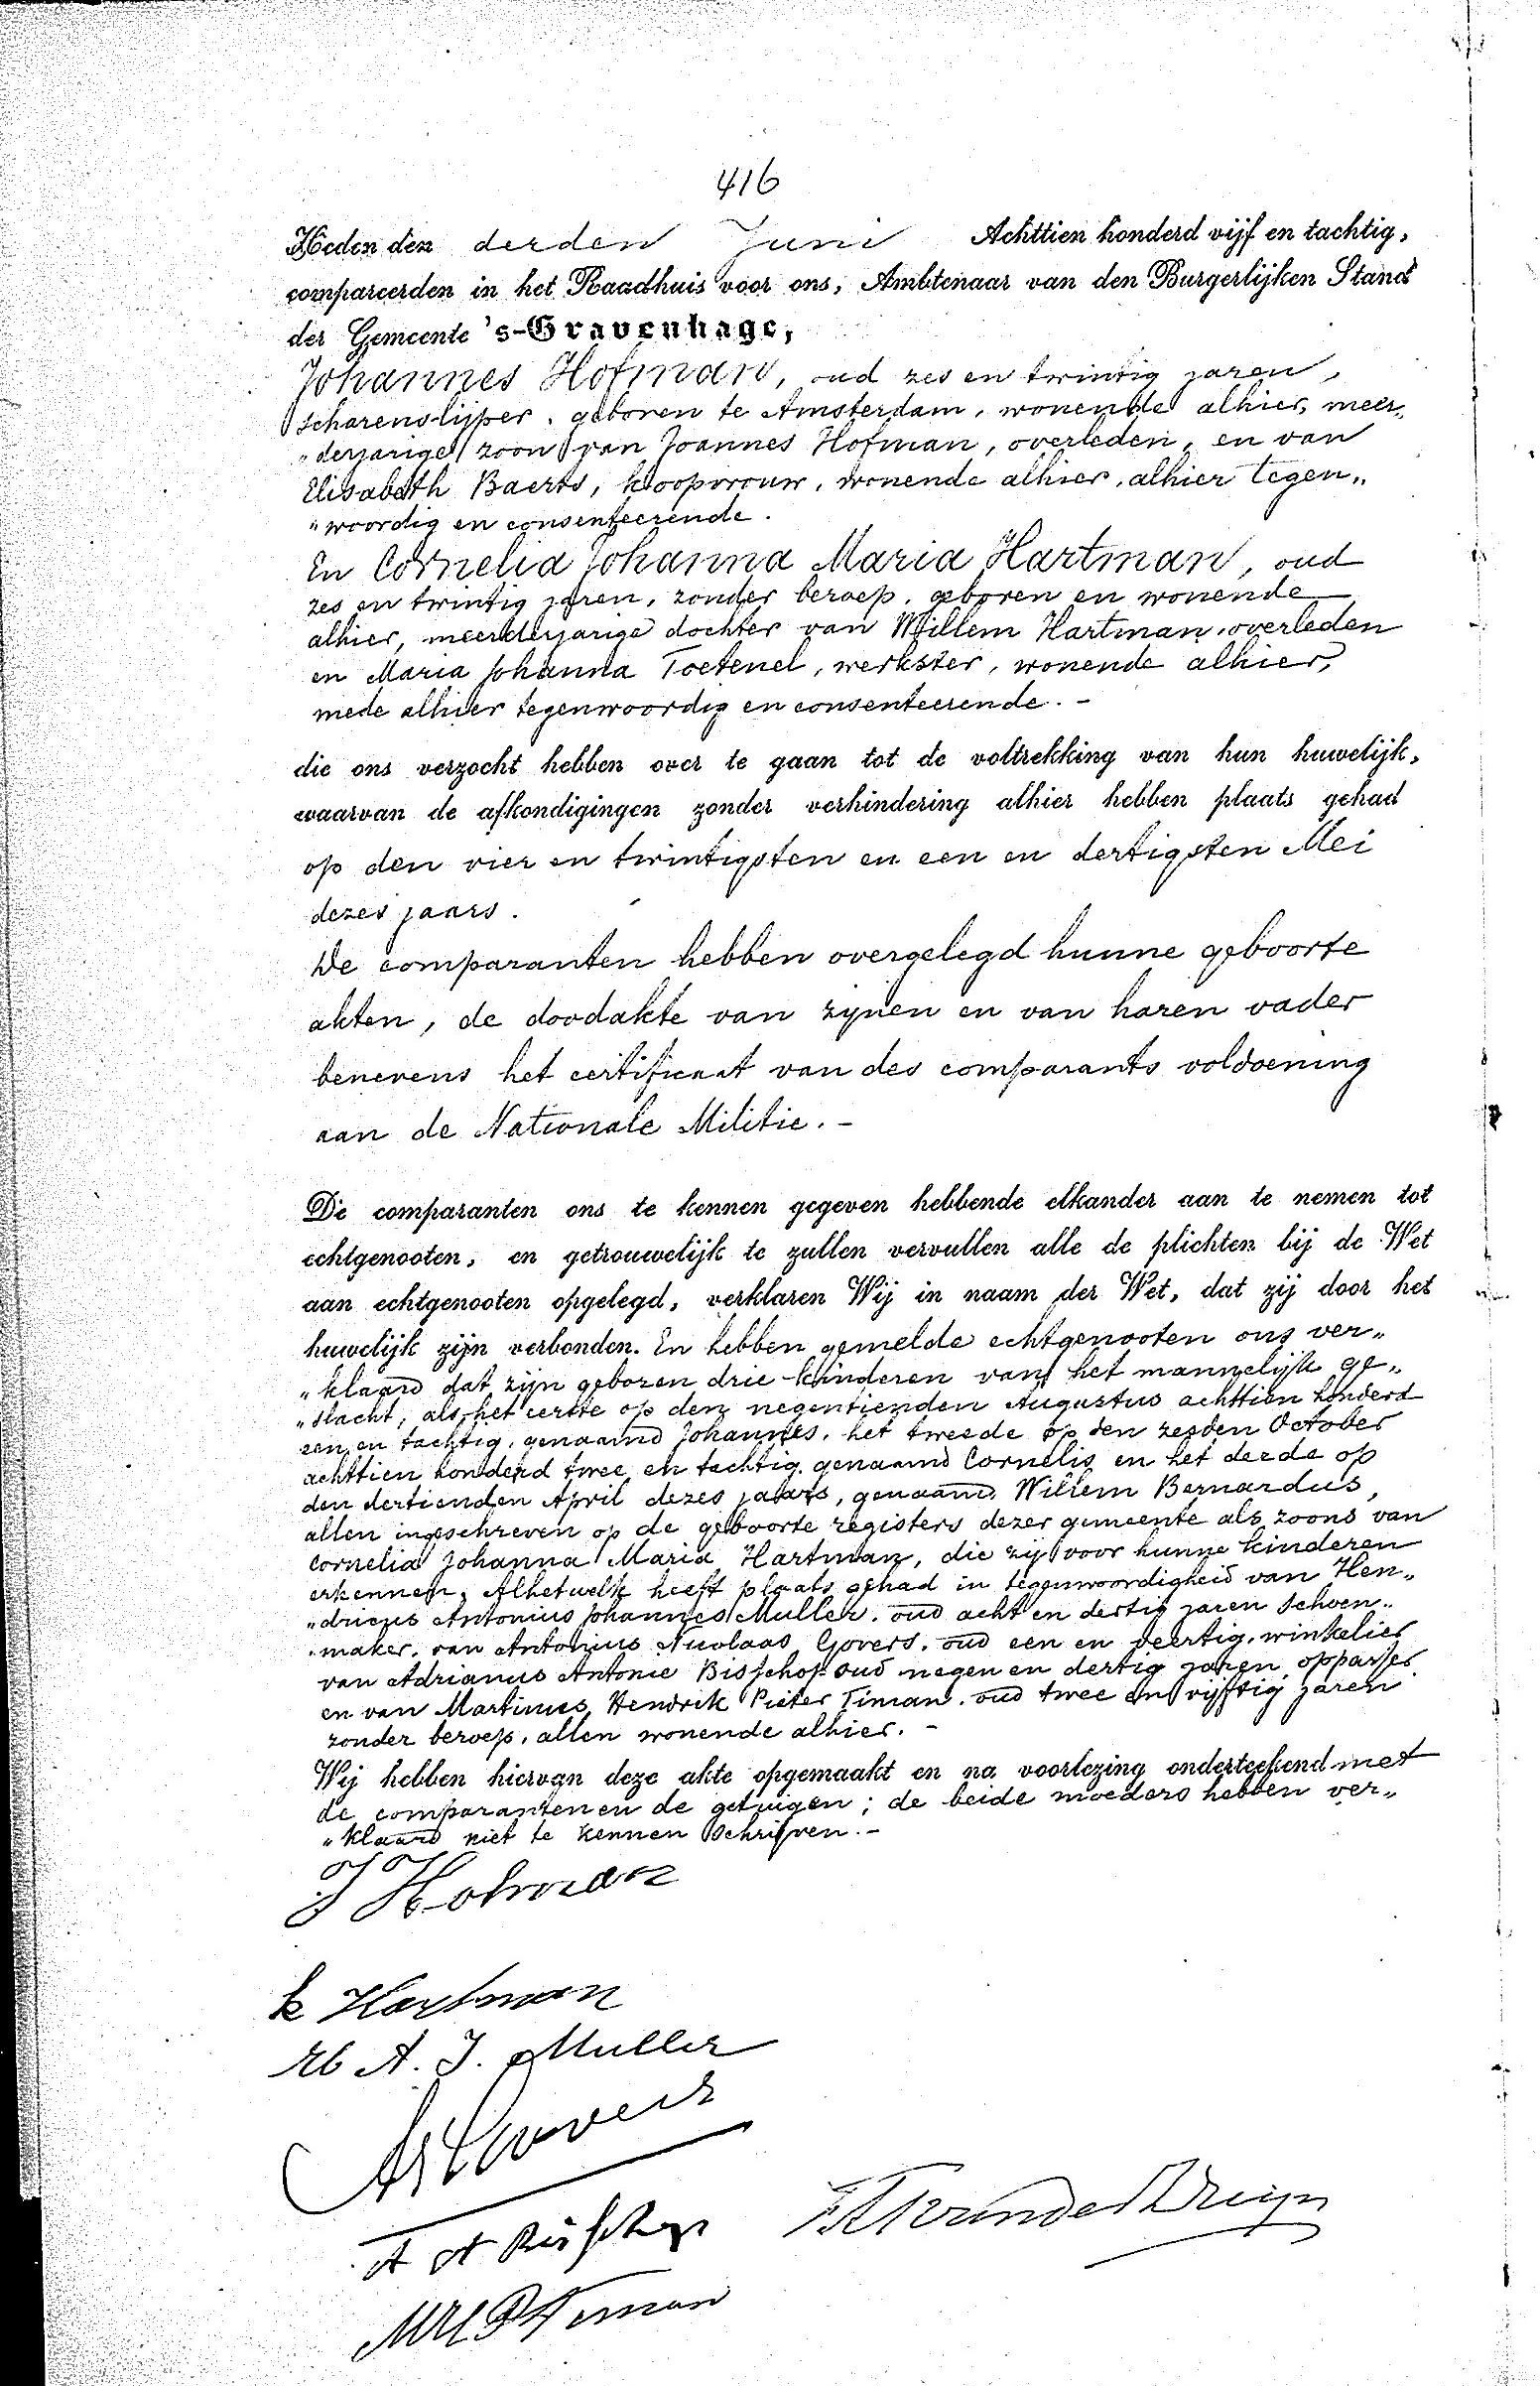 416
Heden den derden Juni Achttien honderd vijf en tachtig,
compareerden in het Raadhuis voor ons, Ambtenaar van den Burgerlijken Stand
der Gemeente 's-Gravenhage,
Johannes Hofman, oud zes en twintig jaren,
scharenslijper, geboren te Amsterdam, wonende alhier, meer„
„derjarige zoon van Joannes Hofman, overleden, en van
Elisabeth Baerts, koopvrouw, wonende alhier, alhier tegen„
„woordig en consenteerende.
En Cornelia Johanna Maria Hartman, oud
zes en twintig jaren, zonder beroep, geboren en wonende
alhier, meerderjarige dochter van Willem Hartman, overleden
en Maria Johanna Toetenel, werkster, wonende alhier,
mede alhier tegenwoordig en consenteerende. -
die ons verzocht hebben over te gaan tot de voltrekking van hun huwelijk,
waarvan de afkondigingen zonder verhindering alhier hebben plaats gehad
op den vier en twintigsten en een en dertigsten Mei
dezes jaars.
De comparanten hebben overgelegd hunne geboorte
akten, de doodakte van zijnen en van haren vader
benevens het certificaat van des comparants voldoening
aan de Nationale Militie. -
De comparanten ons te kennen gegeven hebbende elkander aan te nemen tot
echtgenooten, en getrouwelijk te zullen vervullen alle de plichten bij de Wet
aan echtgenooten opgelegd, verklaren Wij in naam der Wet, dat zij door het
huwelijk zijn verbonden. En hebben gemelde echtgenooten ons ver„
„klaard dat zijn geboren drie kinderen van het mannelijk ge„
„slacht, als het eerste op den negentienden Augustus achttien honderd
een en tachtig, genaamd Johannes, het tweede op den zesden October
achttien honderd twee en tachtig, genaamd Cornelis en het derde op
den dertienden April dezes jaars, genaamd Willem Bernardus,
allen ingeschreven op de geboorte registers dezer gemeente als zoons van
Cornelia Johanna Maria Hartman, die zij voor hunne kinderen
erkennen. Alhetwelk heeft plaats gehad in tegenwoordigheid van Hen„
„dricus Antonius Johannes Muller, oud acht en dertig jaren schoen„
„maker, van Antonius Nicolaas Govers, oud een en veertig, winkelier
van Adrianus Antonie Bisschop oud negen en dertig jaren, oppasser
en van Martinus Hendrik Pieter Timan, oud twee en vijftig jaren
zonder beroep, allen wonende alhier. -
Wij hebben hiervan deze akte opgemaakt en na voorlezing onderteekend met
de comparanten en de getuigen; de beide moeders hebben ver„
„klaard niet te kennen schrijven. -
J Hofman
k Hartman
H A. J. Muller
A N Govers
A A Bisschop
MHP Timan